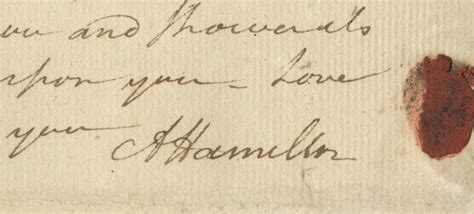 and Showerals
upon you – Love
you AHamilton